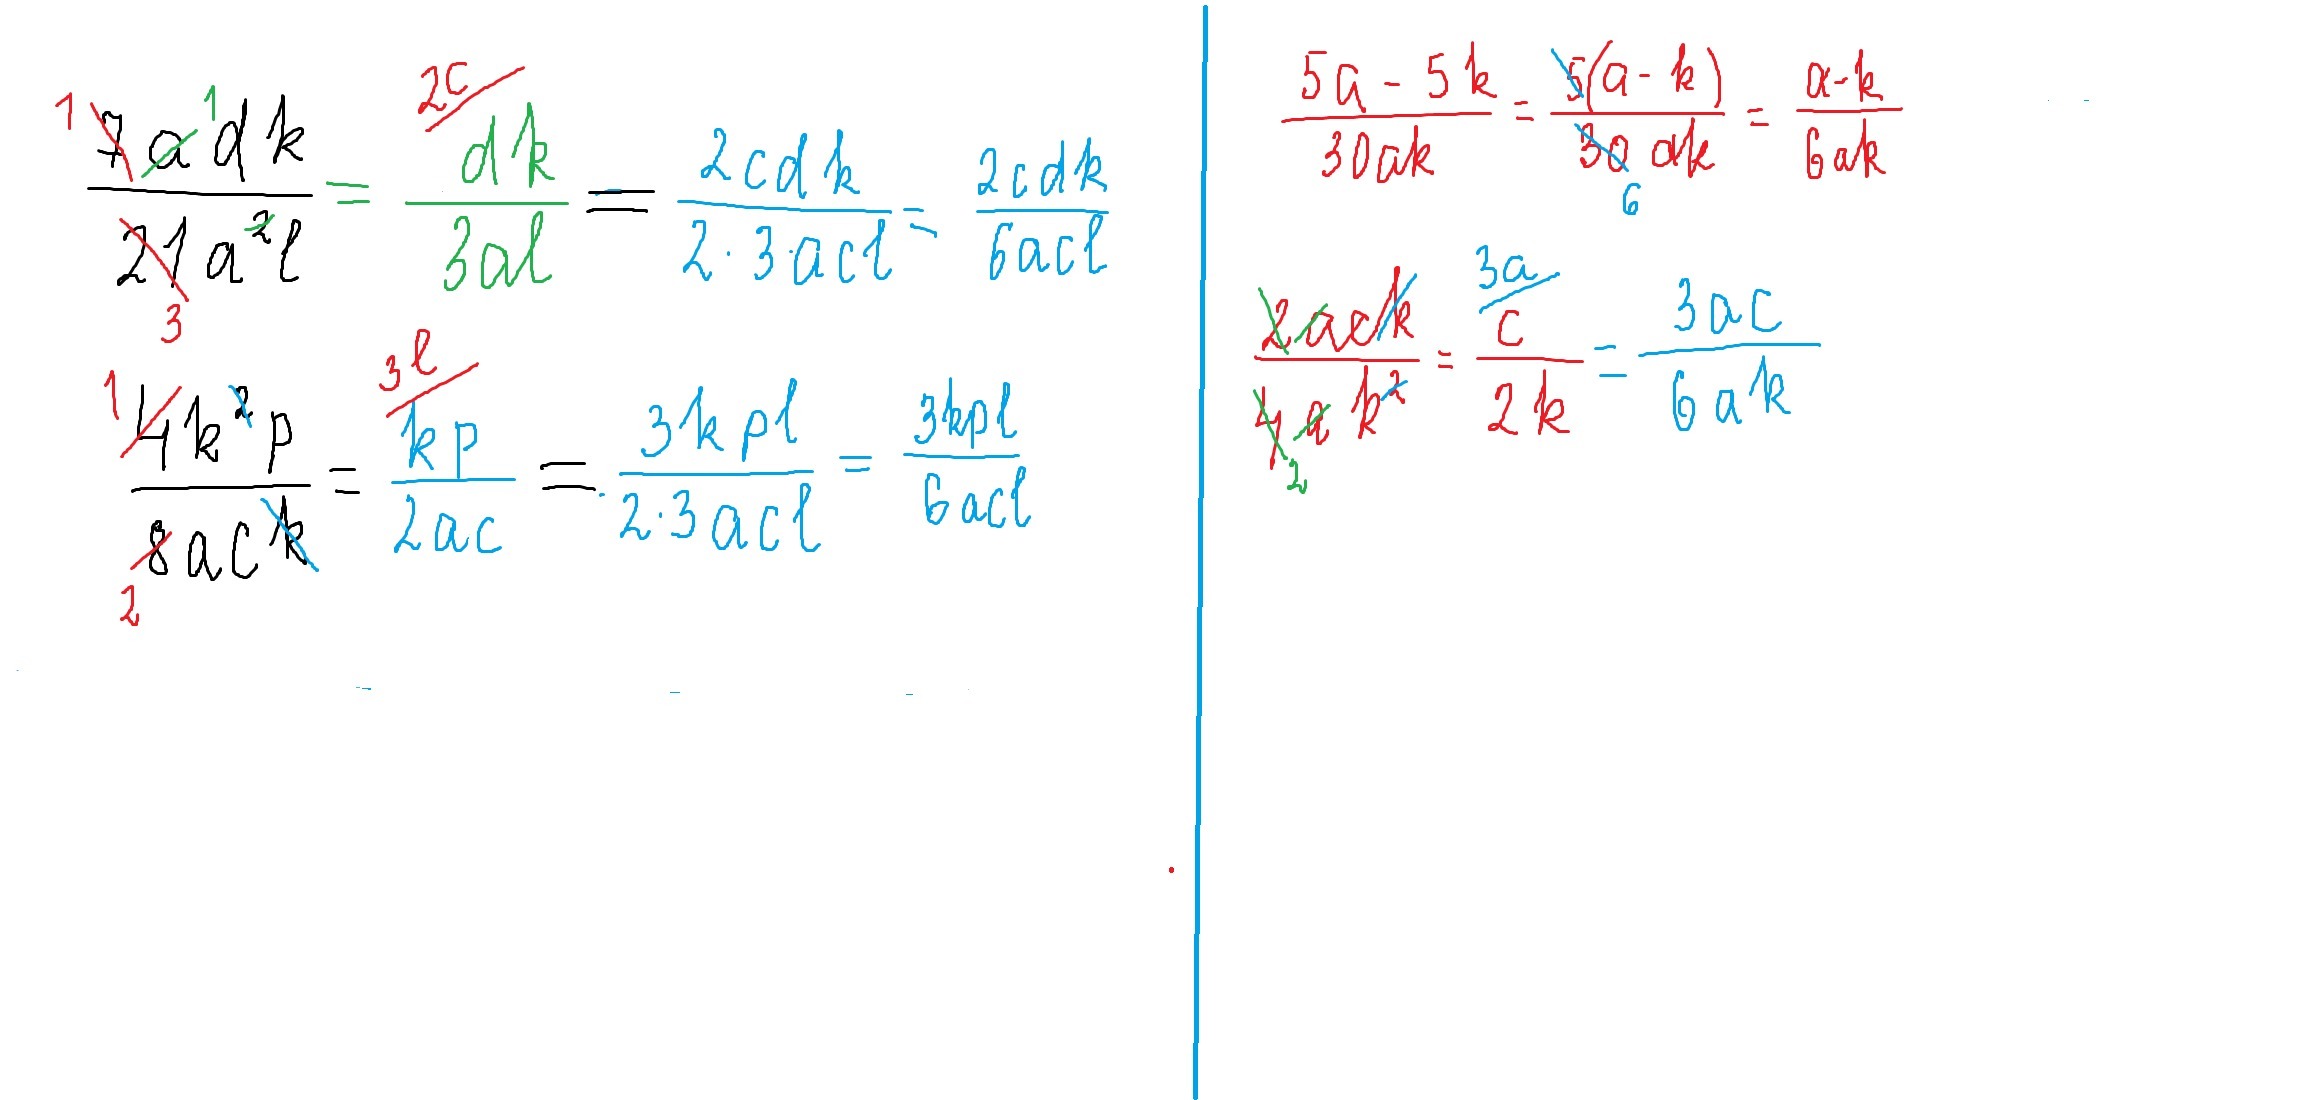 7adk/21a²l = dk/3al = 2cdk/2·3·acl = 2cdk/6acl
1 1 3 2c
4k²p/8ack = kp/2ac = 3kpl/2·3acl = 3kpl/6acl
1 2 3l
5a - 5k/30ak = 5(a - k)/30ak = a-k/6ak
6
2ack/4ak² = c/2k = 3ac/6ak
2 3a